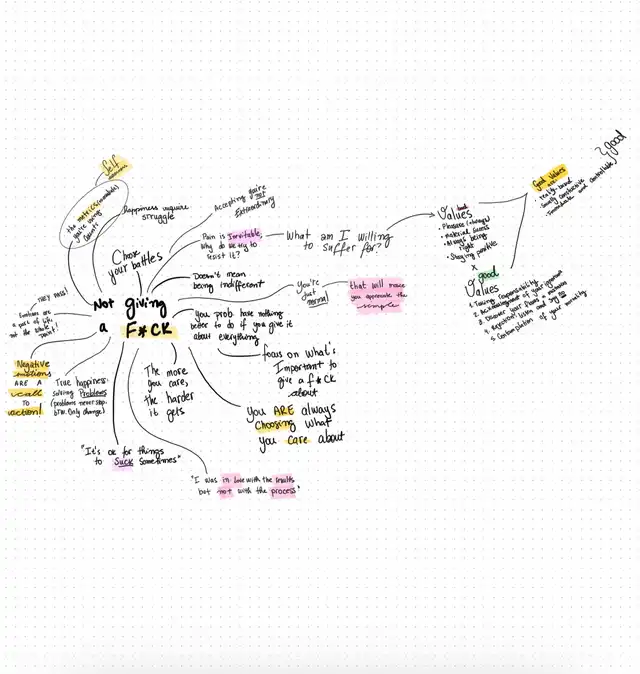 Self
the metrics (standards)
you're using
Happiness require
struggle
Chose
your battles
Accepting you're
not
Extraordinary
Pain is Inevitable,
Why do we try to
resist it?
What am I Willing
to suffer for?
bad
Values
• Pleasure (always)
• Material success
• Always being
right
• Staying positive
x
good
Values
1. Taking responsability
2. Acknowledgement of your ignorance
3. Discover your flaws & mistakes
4. Rejection: listen and say no
5. Contemplation of your mortality
Good Values
are:
Reality-based
Socially constructive
Immediate and controllable
good
Doesn't mean
being indifferent
You're
Just
normal
that will make
you appreciate the
simple
Not giving
a F*CK
you prob have nothing
better to do if you give it
about everything
focus on what's
Important to
give a f*ck
about
You ARE always
Choosing what
you care about
The more
you care,
the harder
it gets
They pass!
Emotions are
a part of life,
not the whole
Negative
emotions
ARE A
call
TO
action!
True happiness:
solving Problems
(problems never stop,
btw. Only change)
"It's ok for things
to Suck Sometimes"
"I was in love with the results
but not with the process"